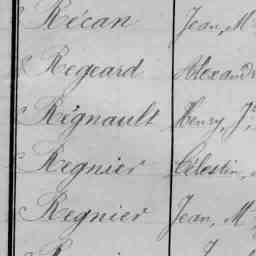 Récan Jean, M
Regeard Alexand
Régnault Henry, J
Regnier Célestin,
Regnier Jean, M